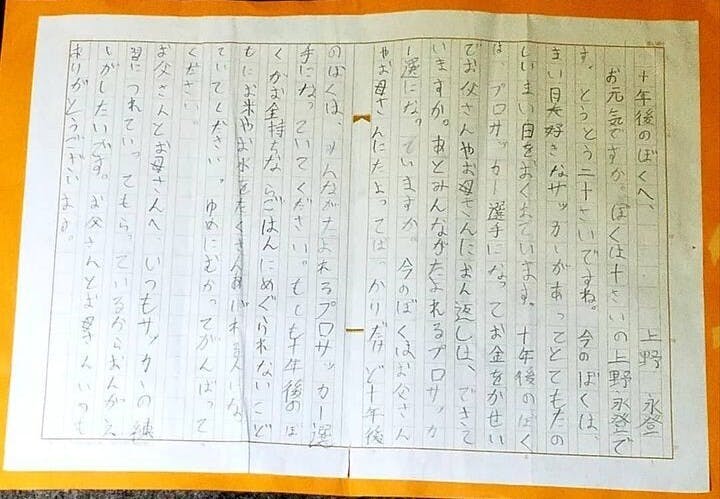 十年後のぼくへ、
上野 永登
お元気ですか。ぼくは十さいの上野永登で
す。とうとう二十さいですね。今のぼくは、
まい日大好きなサッカーがあってとてもたの
しいまい日をおくっています。十年後のぼく
は、プロサッカー選手になってお金をかせい
でお父さんやお母さんにおん返しは、できて
いますか。あとみんながたよれるプロサッカ
ー選になっていますか。今のぼくはお父さん
やお母さんにたよってばっかりだけど十年後
のぼくは、みんながたよれるプロサッカー選
手になっていてください。もしも十年後のぼ
くがお金持ちならごはんにめぐられないこど
もにお米やお水をたくさんあげれる人にな
っていてください。ゆめにむかってがんばって
ください。
お父さんとお母さんへ、いつもサッカーの練
習につれていってもらっているからおんがえ
しがしたいです。お父さんとお母さんいつも
ありがとうございます。